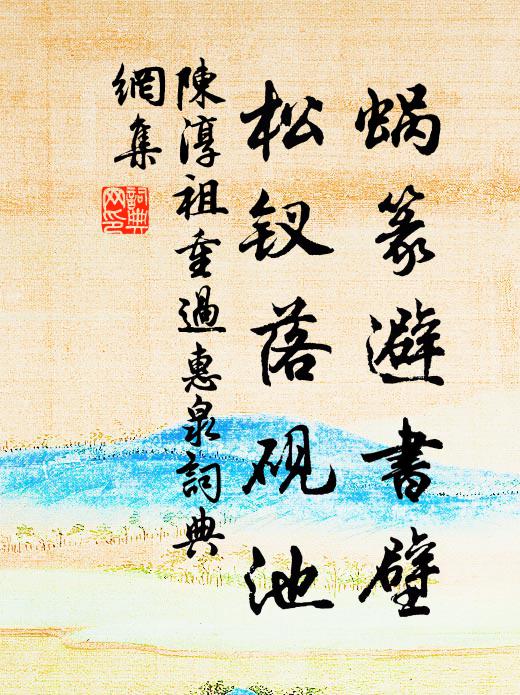 蜗篆避書壁
松钗落砚池
陳淳祖重過惠泉詞典
網集
詞典網印